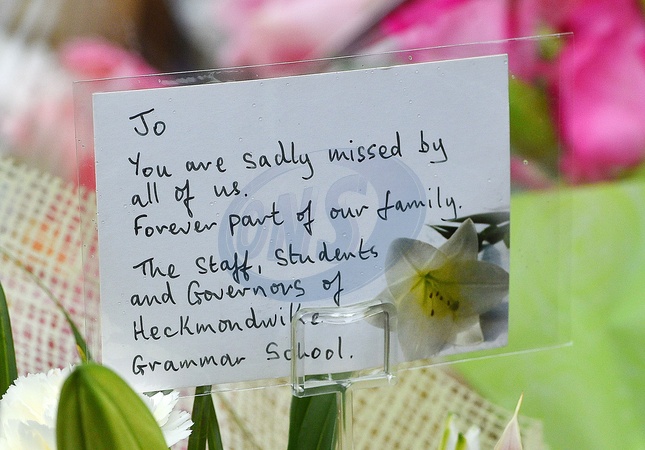 To
You are sadly missed by
all of us.
Forever part of our family.
The Staff, Students
and Governors of
Heckmondwike
Grammar School.
ONS